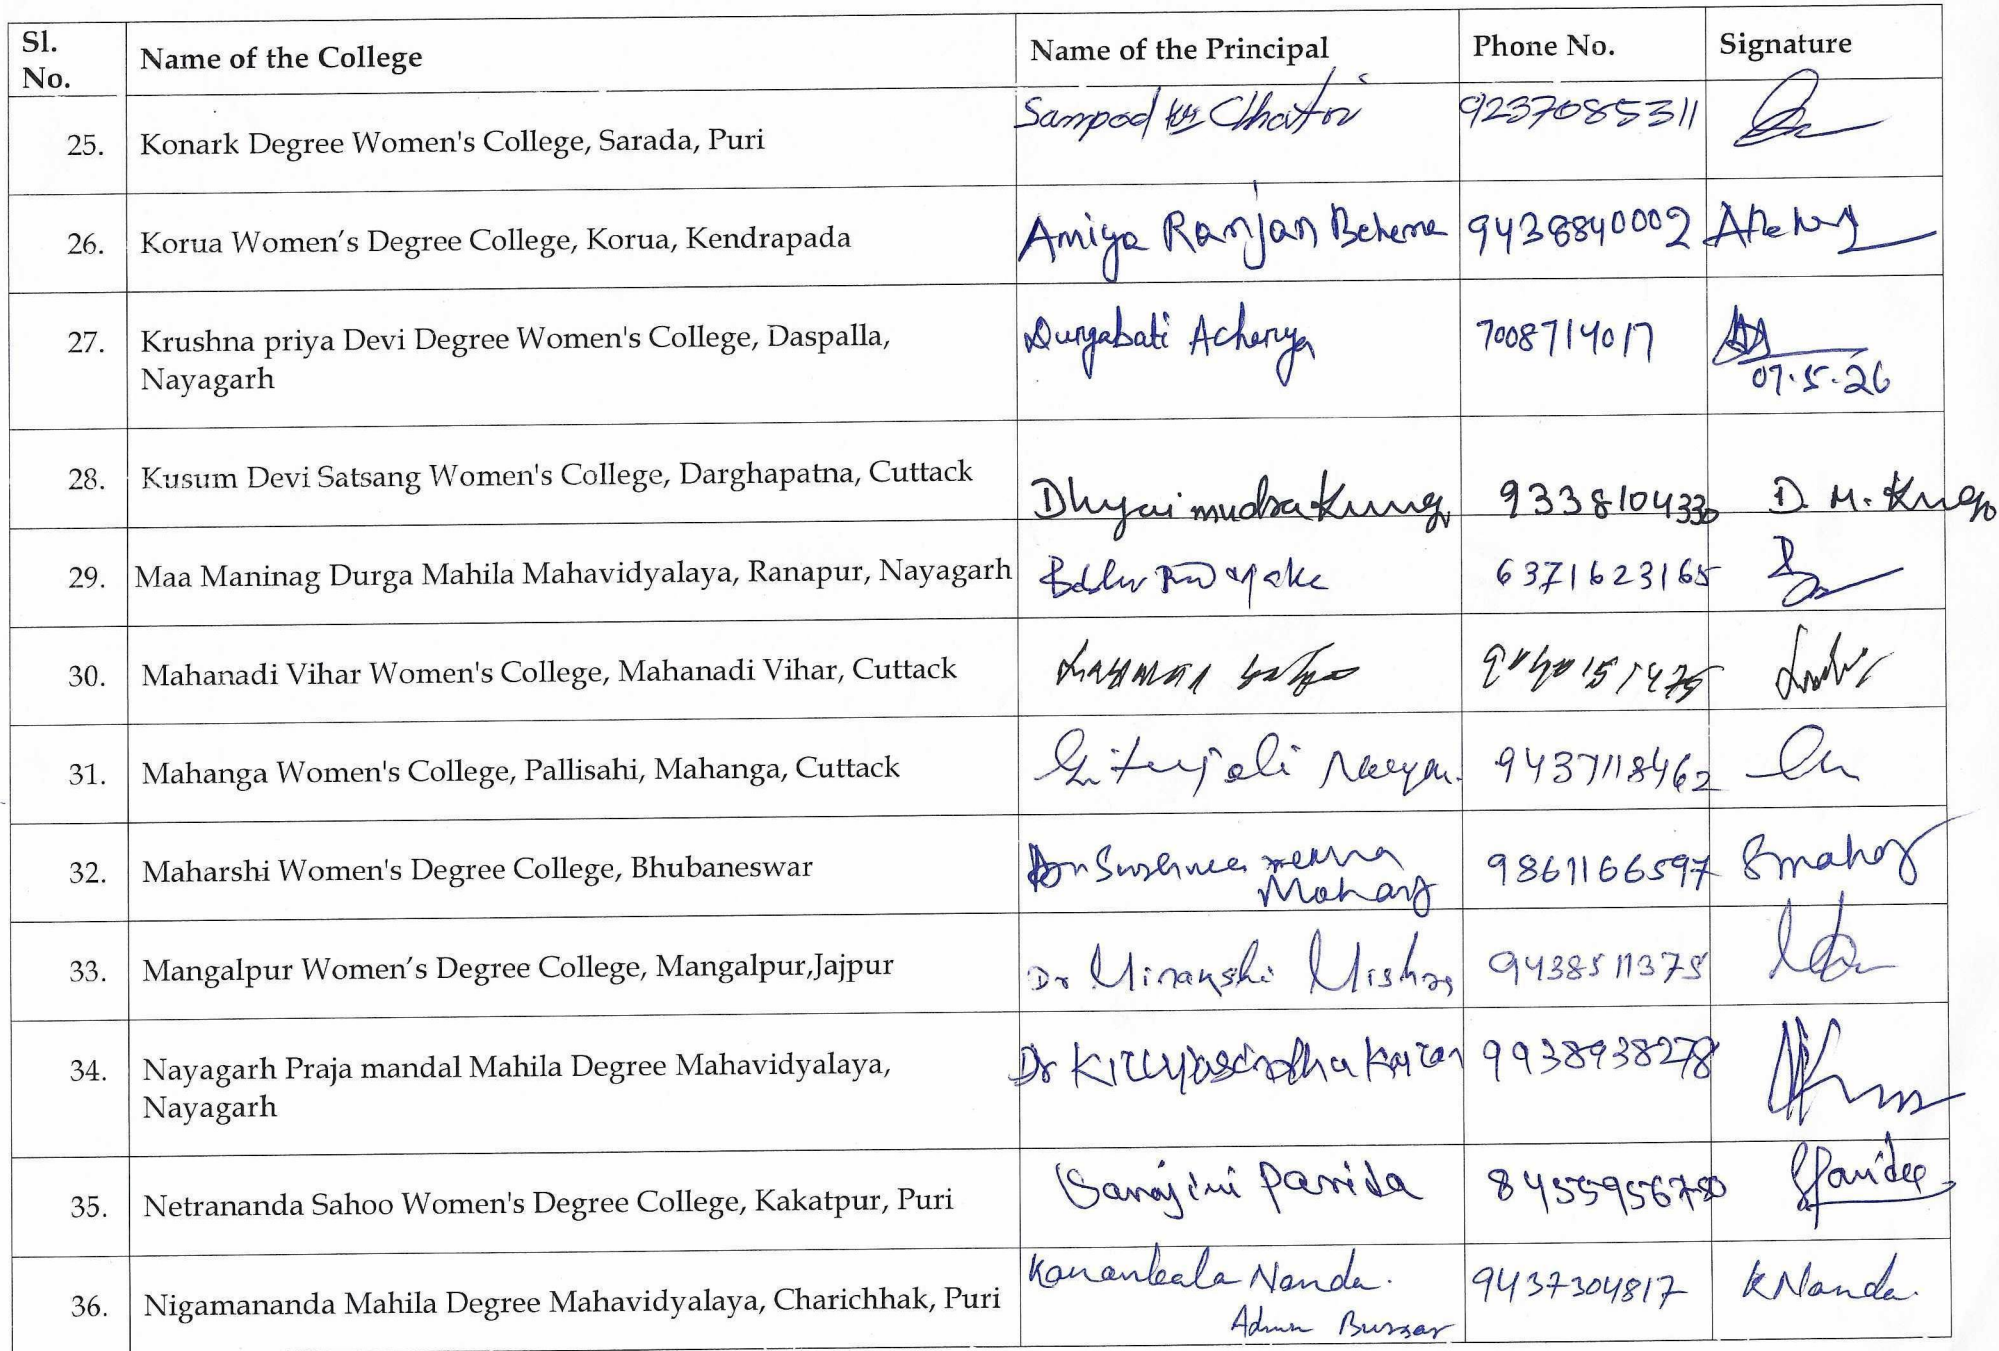 Sl. No. Name of the College Name of the Principal Phone No. Signature
25. Konark Degree Women's College, Sarada, Puri Sampad Kr Chhatoi 9237085311
26. Korua Women’s Degree College, Korua, Kendrapada Amiya Ranjan Behera 9438840002
27. Krushna priya Devi Degree Women's College, Daspalla, Durgabati Acharya 7008714017
Nayagarh 07.5.26
28. Kusum Devi Satsang Women's College, Darghapatna, Cuttack 9338104330 D. M.
29. Maa Maninag Durga Mahila Mahavidyalaya, Ranapur, Nayagarh 6371623165
30. Mahanadi Vihar Women's College, Mahanadi Vihar, Cuttack
31. Mahanga Women's College, Pallisahi, Mahanga, Cuttack 9437118462
32. Maharshi Women's Degree College, Bhubaneswar 9861166597
33. Mangalpur Women’s Degree College, Mangalpur,Jajpur Dr Minakshi Mishra 9438511375
34. Nayagarh Praja mandal Mahila Degree Mahavidyalaya, Dr 9938938278
Nayagarh
35. Netrananda Sahoo Women's Degree College, Kakatpur, Puri Sarojini Parida
36. Nigamananda Mahila Degree Mahavidyalaya, Charichhak, Puri Kananbala Nanda. 9437304817 K Nanda.
Admn Bursar